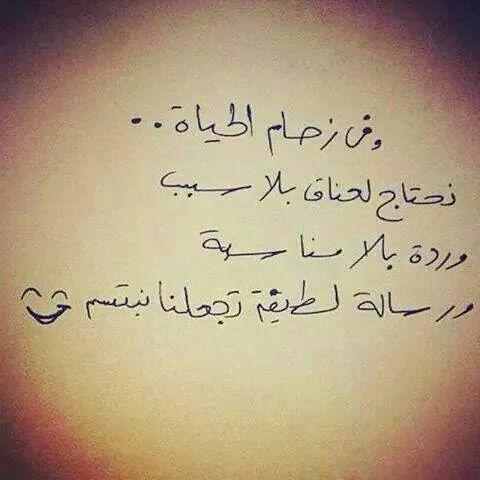 وفى زحام الحياة..
نحتاج لعناق بلا سبب
وردة بلا مناسبة
ورسالة لطيفة تجعلنا نبتسم